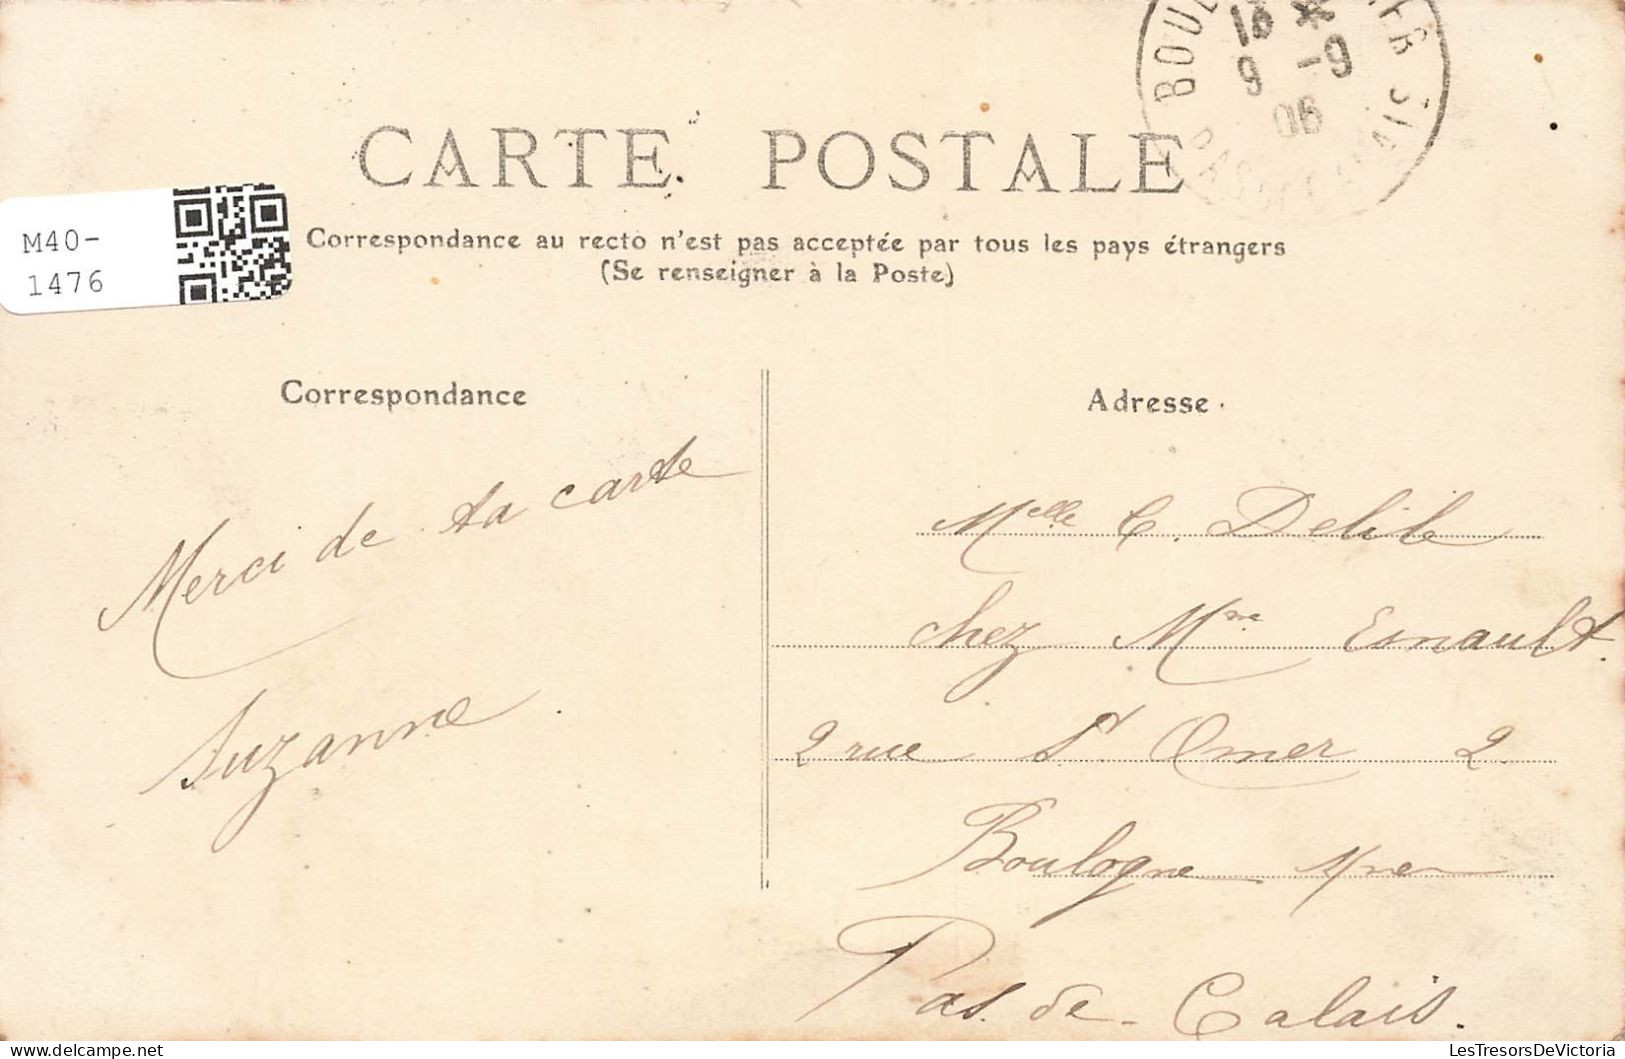 BOUL
MER STA
PAS DE CALAIS
18 *
9 -9
06
CARTE POSTALE
M40-
1476
Correspondance au recto n'est pas acceptée par tous les pays étrangers
(Se renseigner à la Poste)
Correspondance
Adresse
Merci de ta carte
Suzanne.
Melle C. Delile
chez Mme Esnault.
2 rue St Omer 2.
Boulogne s/mer
Pas-de-Calais.
LesTresorsDeVictoria